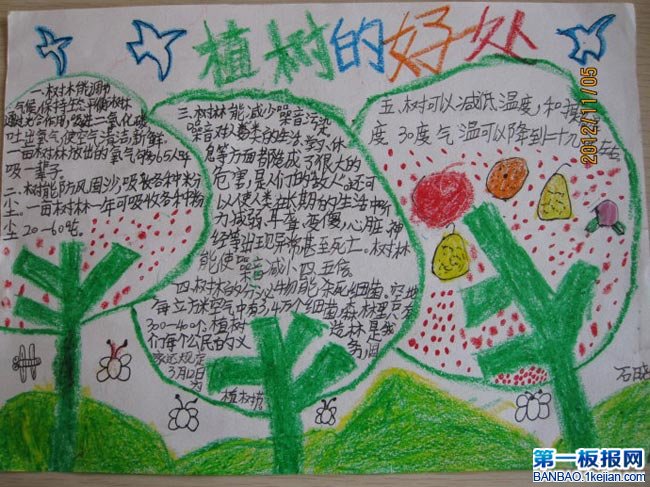 植树的好处
一.树林能调节
气候,保持生态平衡.树林
通过光合作用,吸进二氧化碳,
吐出氧气,使空气清洁新鲜.
一亩树林放出的氧气够65人呼
吸一辈子.
二.树能防风固沙,吸各种粉
尘.一亩树林一年可吸收各种粉
尘20-60吨.
三.树林能减少噪音污染
噪音对人类的生活,
名等方面都造成了很大的
危害,是人们的敌人.它还可
以使人类在长期的生活中听
力减弱、耳聋、变傻,心脏,神
经等出现异常甚至死亡.树林
能使噪音减小四五倍.
四.树林的分泌物能杀死细菌.空地
每立方米空气中有3,4万个细菌.森林里只有
300-400个.植树造林是我
们每个公民的义务,国
家还规定
3月12日
为
植树节
五.树可以减低温度,和
度 30度气温可以降到二十九
左右
2012/11/05
第一板报网
BANBAO.1kejian.com